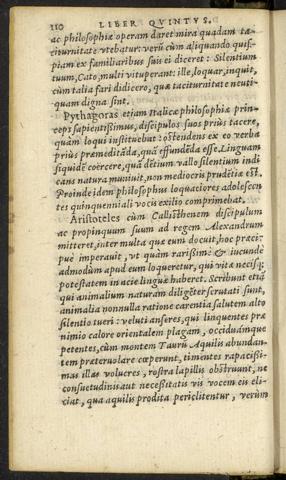 110 LIBER QVINTVS.
ac philosophiæ operam daret mira quadam ta-
citurnitate vtebatur: verū cùm aliquando quis-
piam ex familiaribus suis ei diceret: Silentium
tuum, Cato, multi vituperant: ille, loquar, inquit,
cùm talia fari didicero, quæ taciturnitate ne uti-
quam digna sint.
Pythagoras etiam Italicæ philosophiæ prin-
ceps sapientissimus, discipulos suos priùs tacere,
quàm loqui instituebat: ostendens ex eo verba
priùs præmeditāda, quā effundēda esse. Linguam
siquidē coërcere, quā dētium vallo silentium indi
cans natura muniuit, non mediocris prudētiæ est.
Proinde idem philosophus loquaciores adolescen
tes quinquennali vocis exilio comprimebat.
Aristoteles cùm Callisthenem discipulum
ac propinquum suum ad regem Alexandrum
mitteret, inter multa quæ eum docuit, hoc præci-
puè imperauit, vt quàm rarissimè & iucundè
admodùm apud eum loqueretur, qui vitæ necisq;
potestatem in acie linguæ haberet. Scribunt etiā
qui animalium naturam diligēter scrutati sunt,
animalia nonnulla ratione carentia salutem alto
silentio tueri: veluti anseres, qui linquentes præ
nimio calore orientalem plagam, occiduámque
petentes, cùm montem Taurū Aquilis abundan-
tem præteruolare cœperunt, timentes rapacissi-
mas illas volucres, rostra lapillis obstruunt, ne
consuetudinis aut necessitatis vis vocem eis eli-
ciat, qua aquilis prodita periclitentur, verùm